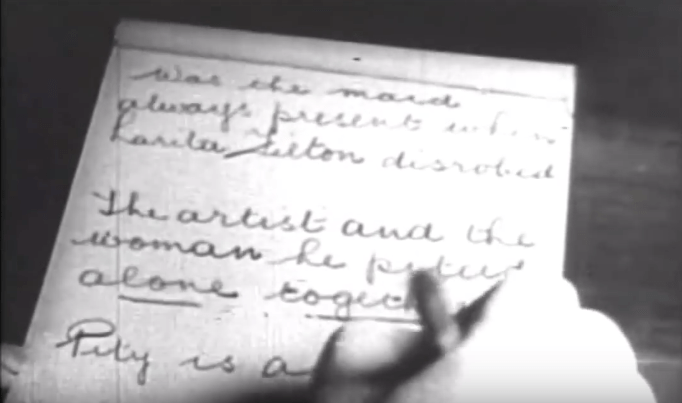 Was the maid
always present when
Larita Filton disrobed
The artist and the
woman he pitied
alone togeth
Pity is a